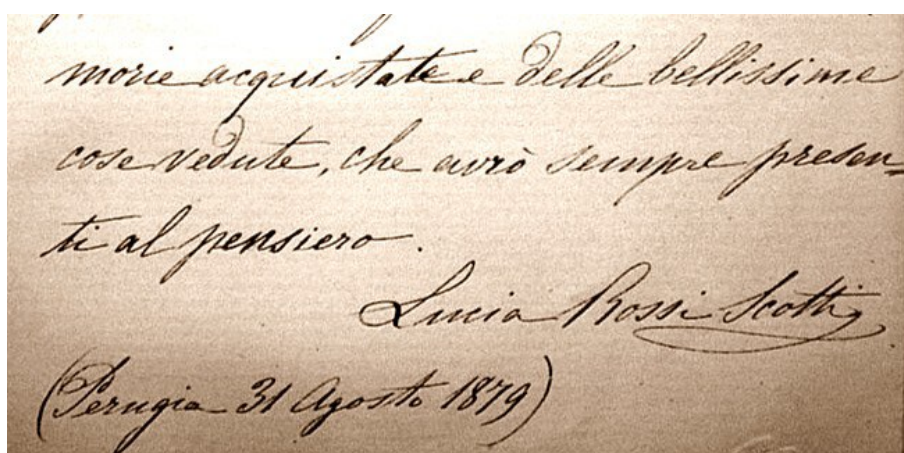 morie acquistate e delle bellissime
cose vedute, che avrò sempre presen=
ti al pensiero.
Lucia Rossi Scotti
(Perugia 31 Agosto 1879)